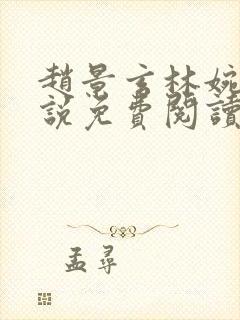 趙景言林婉
說免費閱讀
孟尋